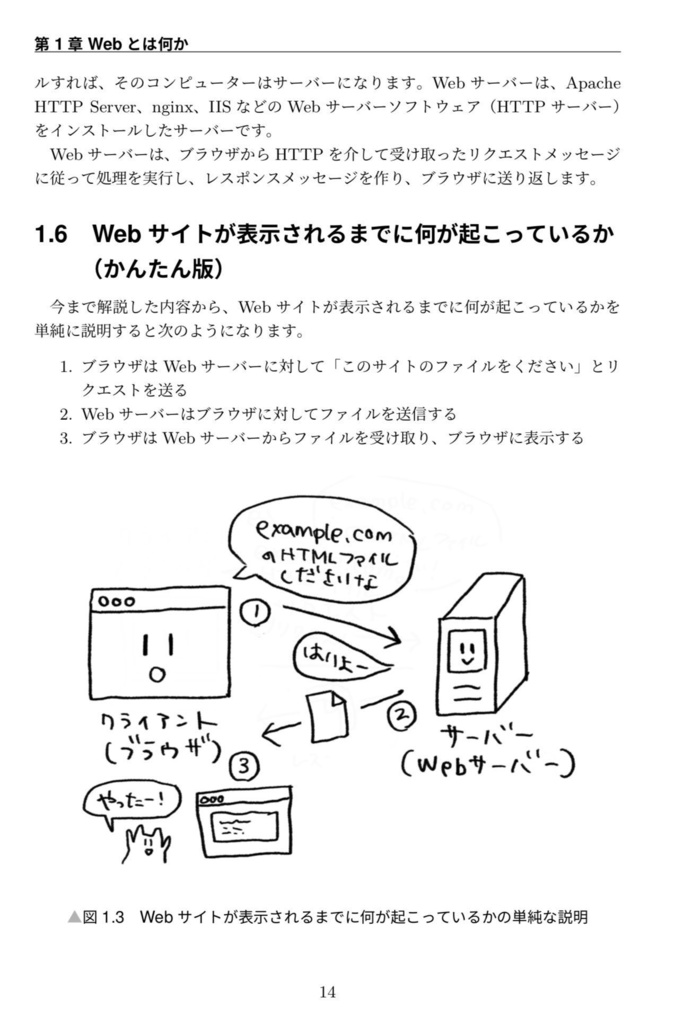 第 1 章 Web とは何か
ルすれば、そのコンピューターはサーバーになります。Web サーバーは、Apache
HTTP Server、nginx、IIS などの Web サーバーソフトウェア（HTTP サーバー）
をインストールしたサーバーです。
Web サーバーは、ブラウザから HTTP を介して受け取ったリクエストメッセージ
に従って処理を実行し、レスポンスメッセージを作り、ブラウザに送り返します。
1.6 Web サイトが表示されるまでに何が起こっているか
（かんたん版）
今まで解説した内容から、Web サイトが表示されるまでに何が起こっているかを
単純に説明すると次のようになります。
1. ブラウザは Web サーバーに対して「このサイトのファイルをください」とリ
クエストを送る
2. Web サーバーはブラウザに対してファイルを送信する
3. ブラウザは Web サーバーからファイルを受け取り、ブラウザに表示する
example.com
のHTMLファイル
①
はいよー
クライアント
(ブラウザ)
②
サーバー
(Webサーバー)
③
やったー!
▲図 1.3 Web サイトが表示されるまでに何が起こっているかの単純な説明
14